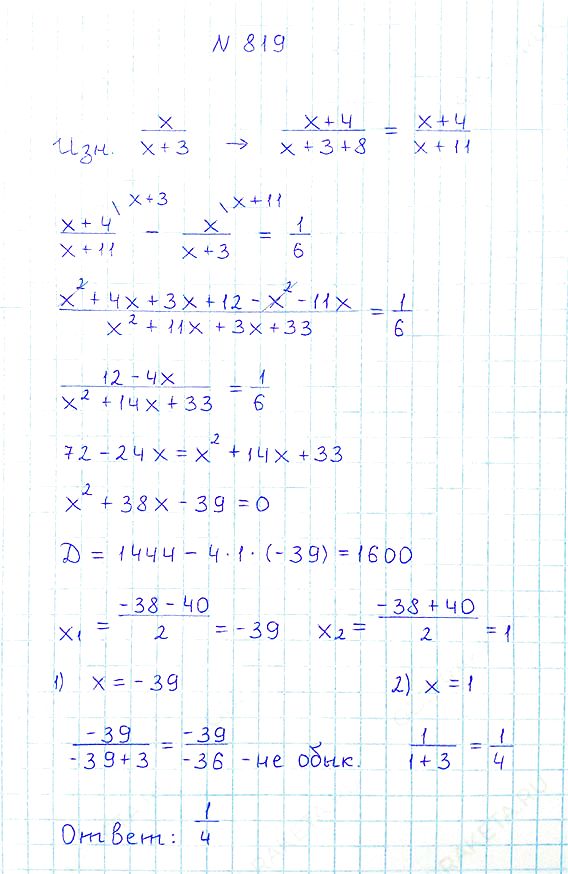 N 819
Изн. x/(x+3) → (x+4)/(x+3+8) = (x+4)/(x+11)
(x+4)/(x+11) \x+3 − x/(x+3) \x+11 = 1/6
(x² + 4x + 3x + 12 − x² − 11x)/(x² + 11x + 3x + 33) = 1/6
(12 − 4x)/(x² + 14x + 33) = 1/6
72 − 24x = x² + 14x + 33
x² + 38x − 39 = 0
D = 1444 − 4·1·(−39) = 1600
x₁ = (−38 − 40)/2 = −39 x₂ = (−38 + 40)/2 = 1
1) x = −39 2) x = 1
−39/(−39+3) = −39/−36 - не обык. 1/(1+3) = 1/4
Ответ: 1/4
RAKETA.RU